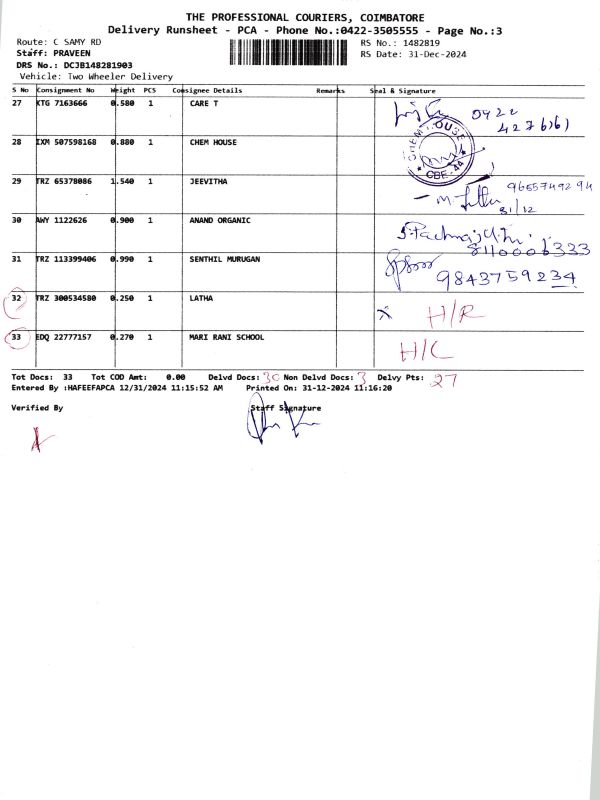 THE PROFESSIONAL COURIERS, COIMBATORE
Delivery Runsheet - PCA - Phone No.:0422-3505555 - Page No.:3
Route: C SAMY RD
RS No.: 1482819
Staff: PRAVEEN
RS Date: 31-Dec-2024
DRS No.: DCJB148281903
Vehicle: Two Wheeler Delivery
S No Consignment No Weight PCS Consignee Details Remarks Seal & Signature
27 KTG 7163666 0.580 1 CARE T 0422
4276361
28 IXM 507598168 0.880 1 CHEM HOUSE CHEM HOUSE CBE-44
29 TRZ 65378086 1.540 1 JEEVITHA 9655749294
31/12
30 AWY 1122626 0.900 1 ANAND ORGANIC
8110006333
31 TRZ 113399406 0.990 1 SENTHIL MURUGAN 9843759234
32 TRZ 300534580 0.250 1 LATHA x H/R
33 EDQ 22777157 0.270 1 MARI RANI SCHOOL H/C
Tot Docs: 33 Tot COD Amt: 0.00 Delvd Docs: 30 Non Delvd Docs: 3 Delvy Pts: 27
Entered By :HAFEEFAPCA 12/31/2024 11:15:52 AM Printed On: 31-12-2024 11:16:20
Verified By Staff Signature